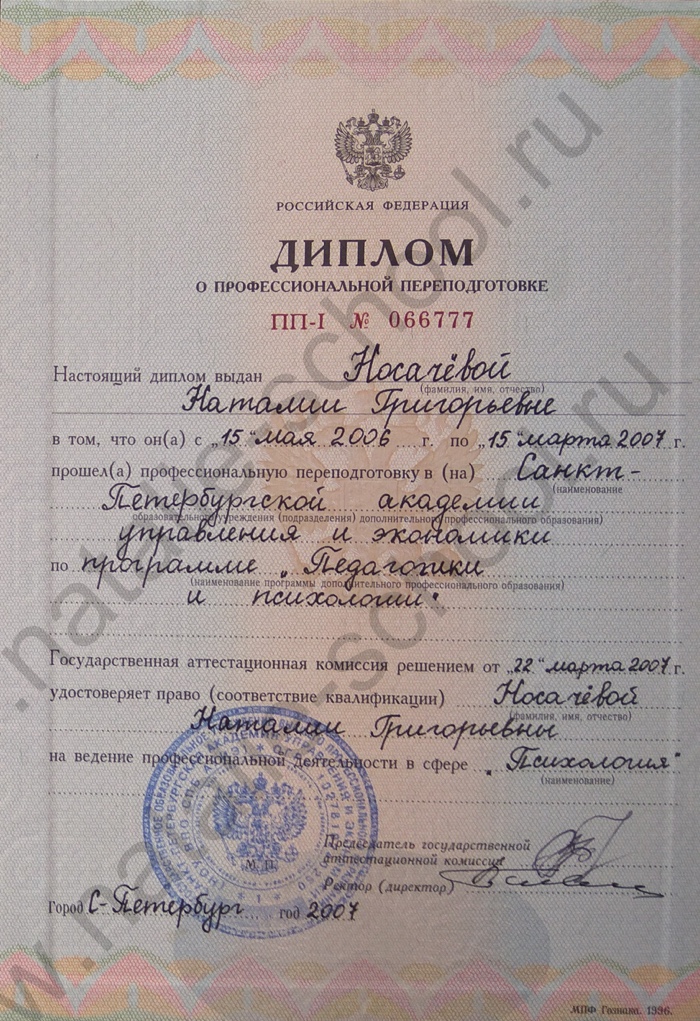 РОССИЙСКАЯ ФЕДЕРАЦИЯ
ДИПЛОМ
О ПРОФЕССИОНАЛЬНОЙ ПЕРЕПОДГОТОВКЕ
ПП-I № 066777
Настоящий диплом выдан Носачёвой
(фамилия, имя, отчество)
Наталии Григорьевне
в том, что он(а) с „15“ мая 2006 г. по „15“ марта 2007 г.
прошел(а) профессиональную переподготовку в (на) Санкт-
(наименование
Петербургской академии
образовательного учреждения (подразделения) дополнительного профессионального образования)
управления и экономики
по программе „Педагогики
(наименование программы дополнительного профессионального образования)
и психологии“
Государственная аттестационная комиссия решением от „22“ марта 2007 г.
удостоверяет право (соответствие квалификации) Носачёвой
(фамилия, имя, отчество)
Наталии Григорьевны
на ведение профессиональной деятельности в сфере „Психология“
(наименование)
Председатель государственной
аттестационной комиссии
М.П.
Ректор (директор)
Город С-Петербург год 2007
МПФ Гознака. 1996.
www.natalie-school.ru
.natalie-school.ru